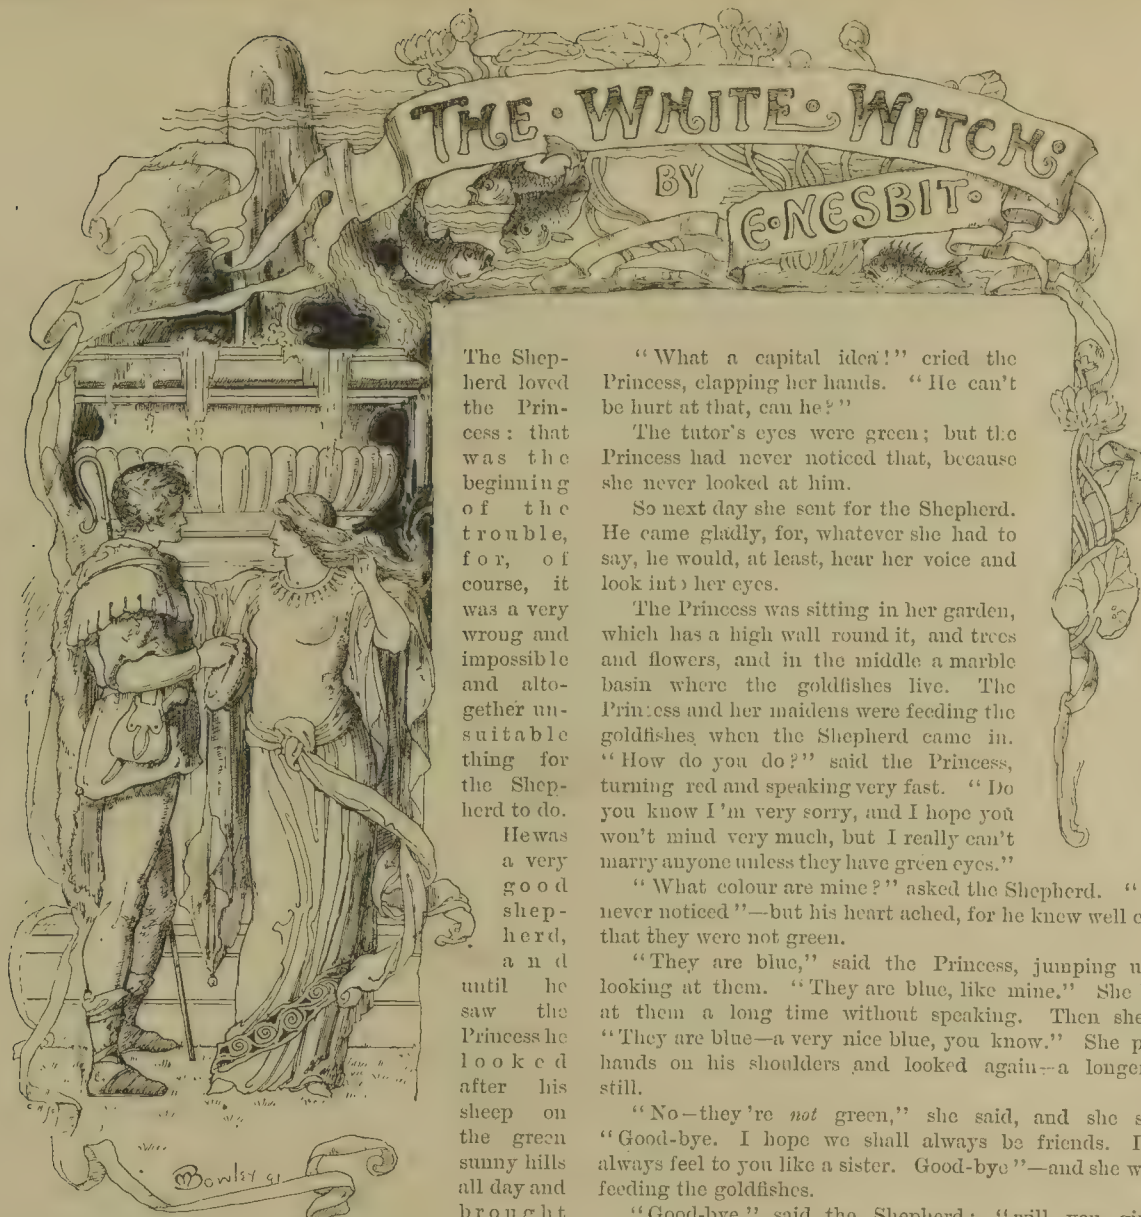 THE · WHITE · WITCH:
BY
E · NESBIT ·
The Shep-
herd loved
the Prin-
cess: that
was the
beginning
of the
trouble,
for, of
course, it
was a very
wrong and
impossible
and alto-
gether un-
suitable
thing for
the Shep-
herd to do.
He was
a very
good
shep-
herd,
and
until he
saw the
Princess he
looked
after his
sheep on
the green
sunny hills
all day and
brought
"What a capital idea!" cried the
Princess, clapping her hands. "He can't
be hurt at that, can he?"
The tutor's eyes were green; but the
Princess had never noticed that, because
she never looked at him.
So next day she sent for the Shepherd.
He came gladly, for, whatever she had to
say, he would, at least, hear her voice and
look into her eyes.
The Princess was sitting in her garden,
which has a high wall round it, and trees
and flowers, and in the middle a marble
basin where the goldfishes live. The
Princess and her maidens were feeding the
goldfishes when the Shepherd came in.
"How do you do?" said the Princess,
turning red and speaking very fast. "Do
you know I'm very sorry, and I hope you
won't mind very much, but I really can't
marry anyone unless they have green eyes."
"What colour are mine?" asked the Shepherd. "
never noticed"—but his heart ached, for he knew well
that they were not green.
"They are blue," said the Princess, jumping
looking at them. "They are blue, like mine." She
at them a long time without speaking. Then she
"They are blue—a very nice blue, you know." She
hands on his shoulders and looked again—a longer
still.
"No—they're not green," she said, and she
"Good-bye. I hope we shall always be friends. I
always feel to you like a sister. Good-bye"—and she
feeding the goldfishes.
"Good-bye," said the Shepherd; "will you
Bowley 91